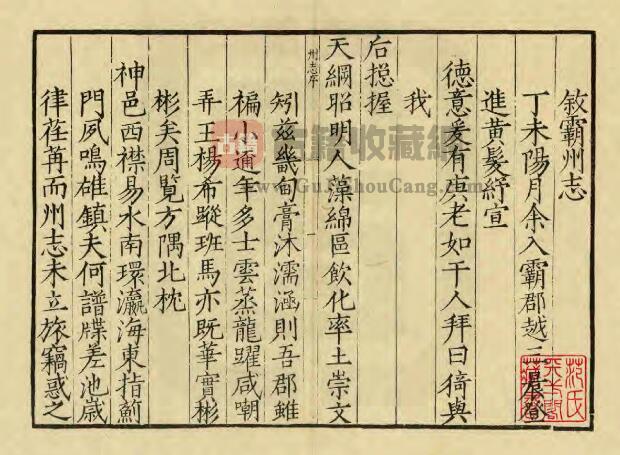 敘霸州志
丁未陽月余入霸郡越三日晨登
進黃髮紓宣
德意爰有庚老如干人拜曰猗與
我
后摠握
天綱昭明人藻綿區飲化率土崇文
州志序
一
矧茲畿甸膏沐濡涵則吾郡雖
褊小通年多士雲蒸龍躍咸嘲
弄王楊希蹤班馬亦既華實彬
彬矣周覽方隅北枕
神邑西襟易水南環瀛海東指薊
門夙鳴雄鎮夫何譜牒差池歲
律荏苒而州志未立旅竊惑之
范氏
天一閣
藏書
古籍
古籍收藏網
www.GuJiShouCang.com